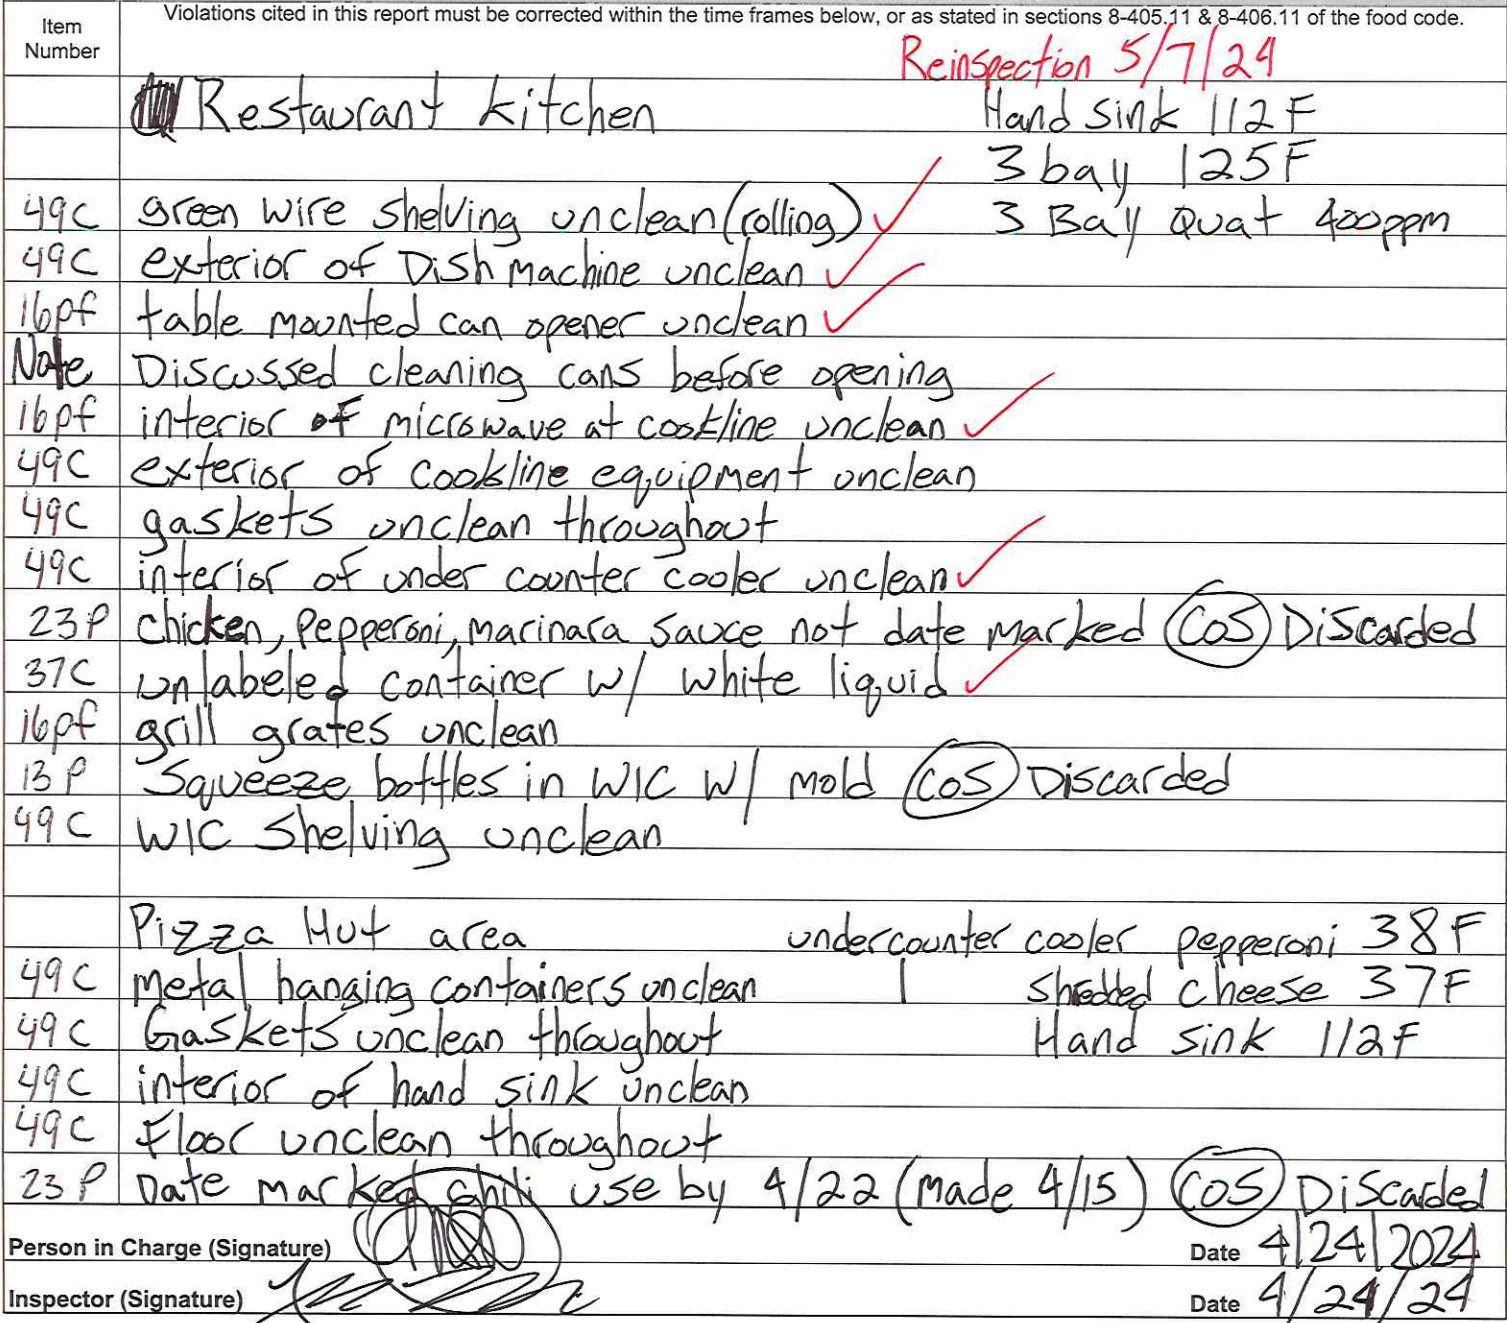 Item Number
Violations cited in this report must be corrected within the time frames below, or as stated in sections 8-405.11 & 8-406.11 of the food code.
Reinspection 5/7/24
Restaurant kitchen Hand sink 112F
3 bay 125F
49C green wire shelving unclean (rolling) ✓ 3 Bay Quat 400ppm
49C exterior of Dish machine unclean ✓
16pf table mounted can opener unclean ✓
Note Discussed cleaning cans before opening
16pf interior of microwave at cookline unclean ✓
49C exterior of cookline equipment unclean
49C gaskets unclean throughout
49C interior of under counter cooler unclean ✓
23P chicken, pepperoni, marinara sauce not date marked COS Discarded
37C unlabeled container w/ white liquid ✓
16pf grill grates unclean
13P Squeeze bottles in WIC w/ mold COS Discarded
49C WIC shelving unclean
Pizza Hut area undercounter cooler pepperoni 38F
49C metal hanging containers unclean | shredded cheese 37F
49C Gaskets unclean throughout Hand sink 112F
49C interior of hand sink unclean
49C Floor unclean throughout
23P Date marked chili use by 4/22 (made 4/15) COS Discarded
Person in Charge (Signature) Date 4/24/2024
Inspector (Signature) Date 4/24/24